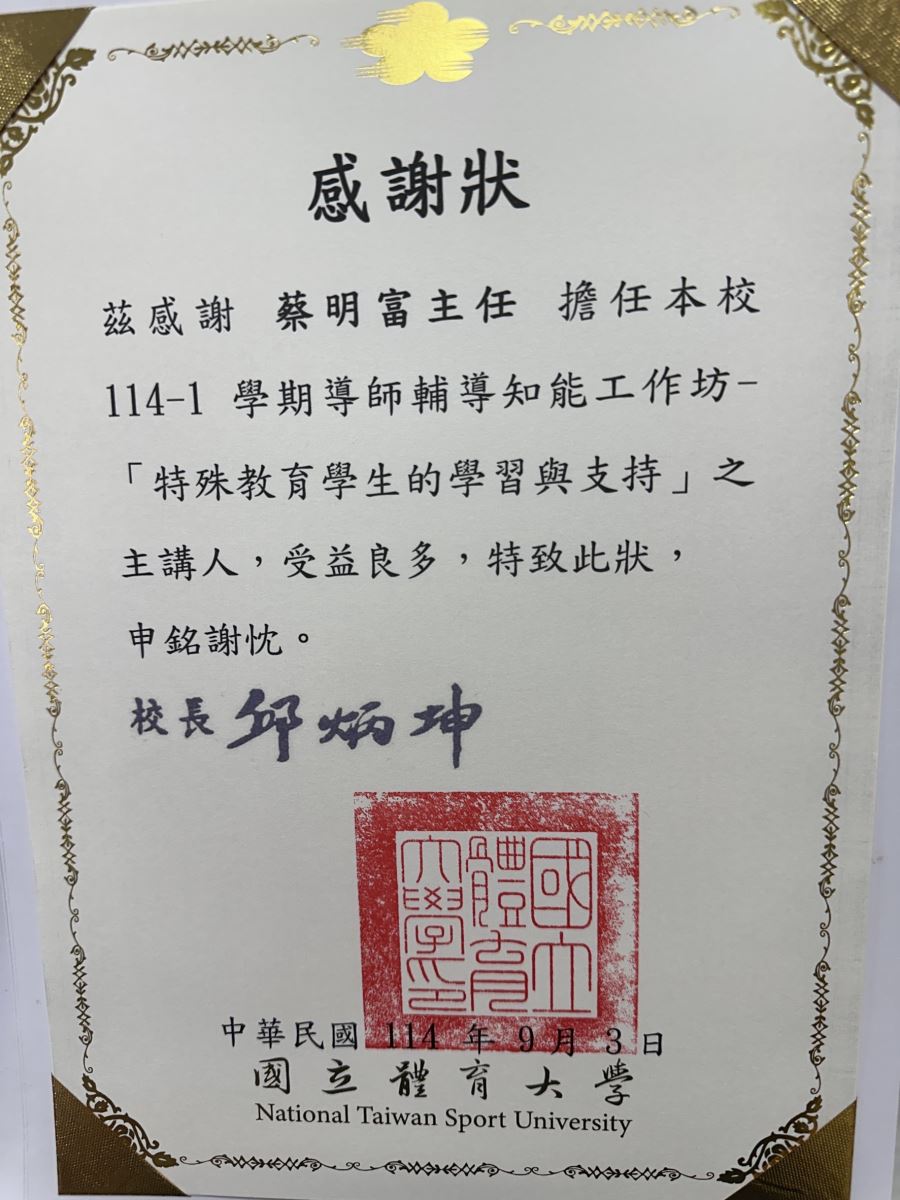 感謝狀
茲感謝 蔡明富主任 擔任本校
114-1 學期導師輔導知能工作坊-
「特殊教育學生的學習與支持」之
主講人，受益良多，特致此狀，
申銘謝忱。
校長 邱炳坤
國立體育大學印
中華民國 114 年 9 月 3 日
國立體育大學
National Taiwan Sport University